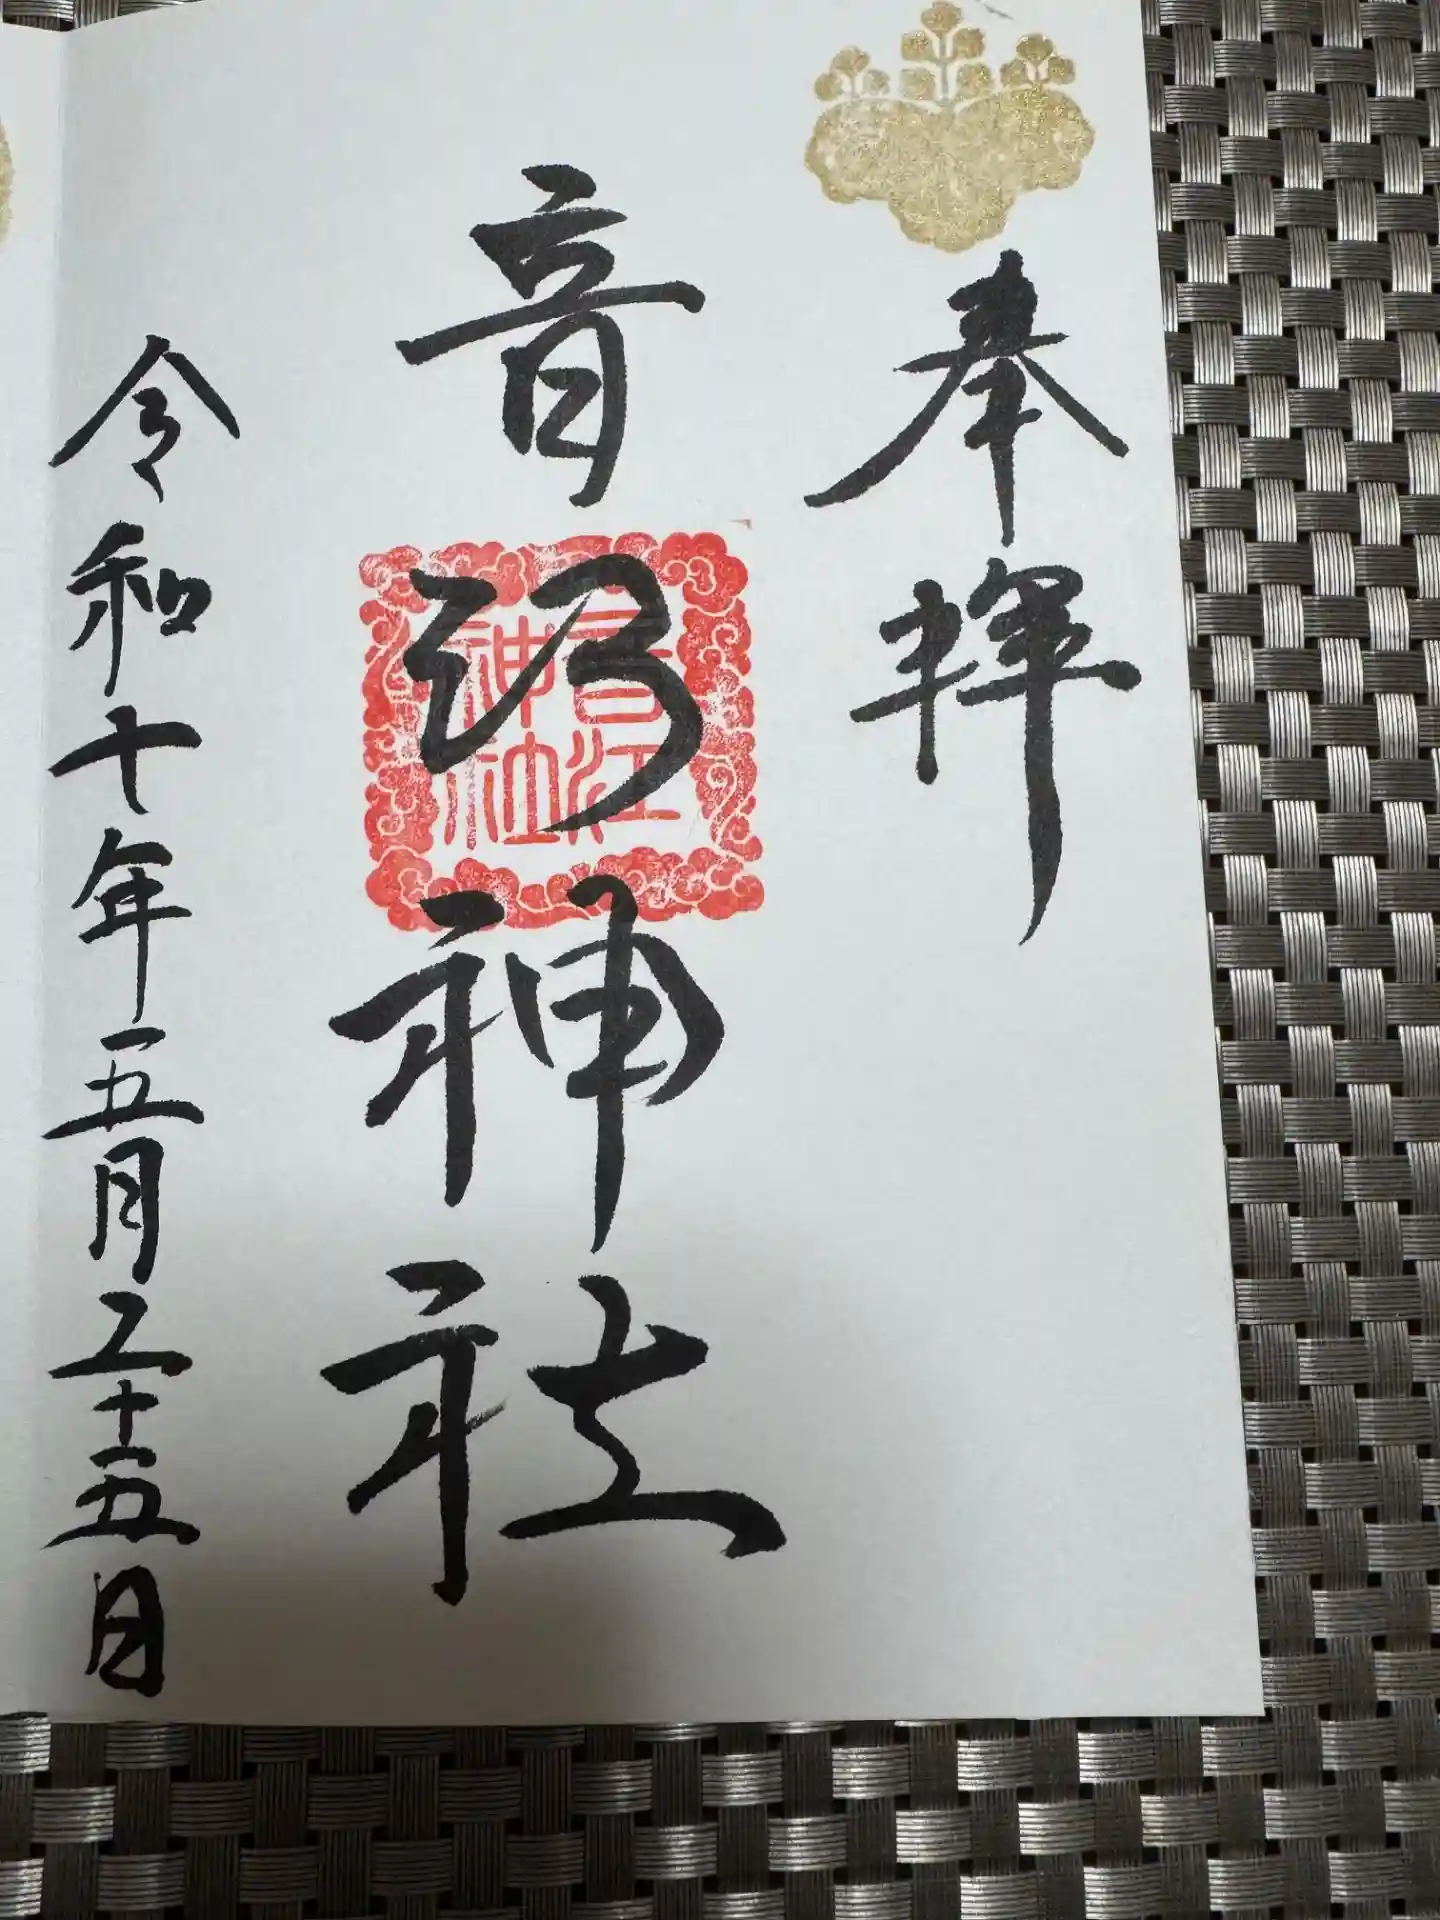 奉拝
音江神社
音江神社
令和十年五月二十五日